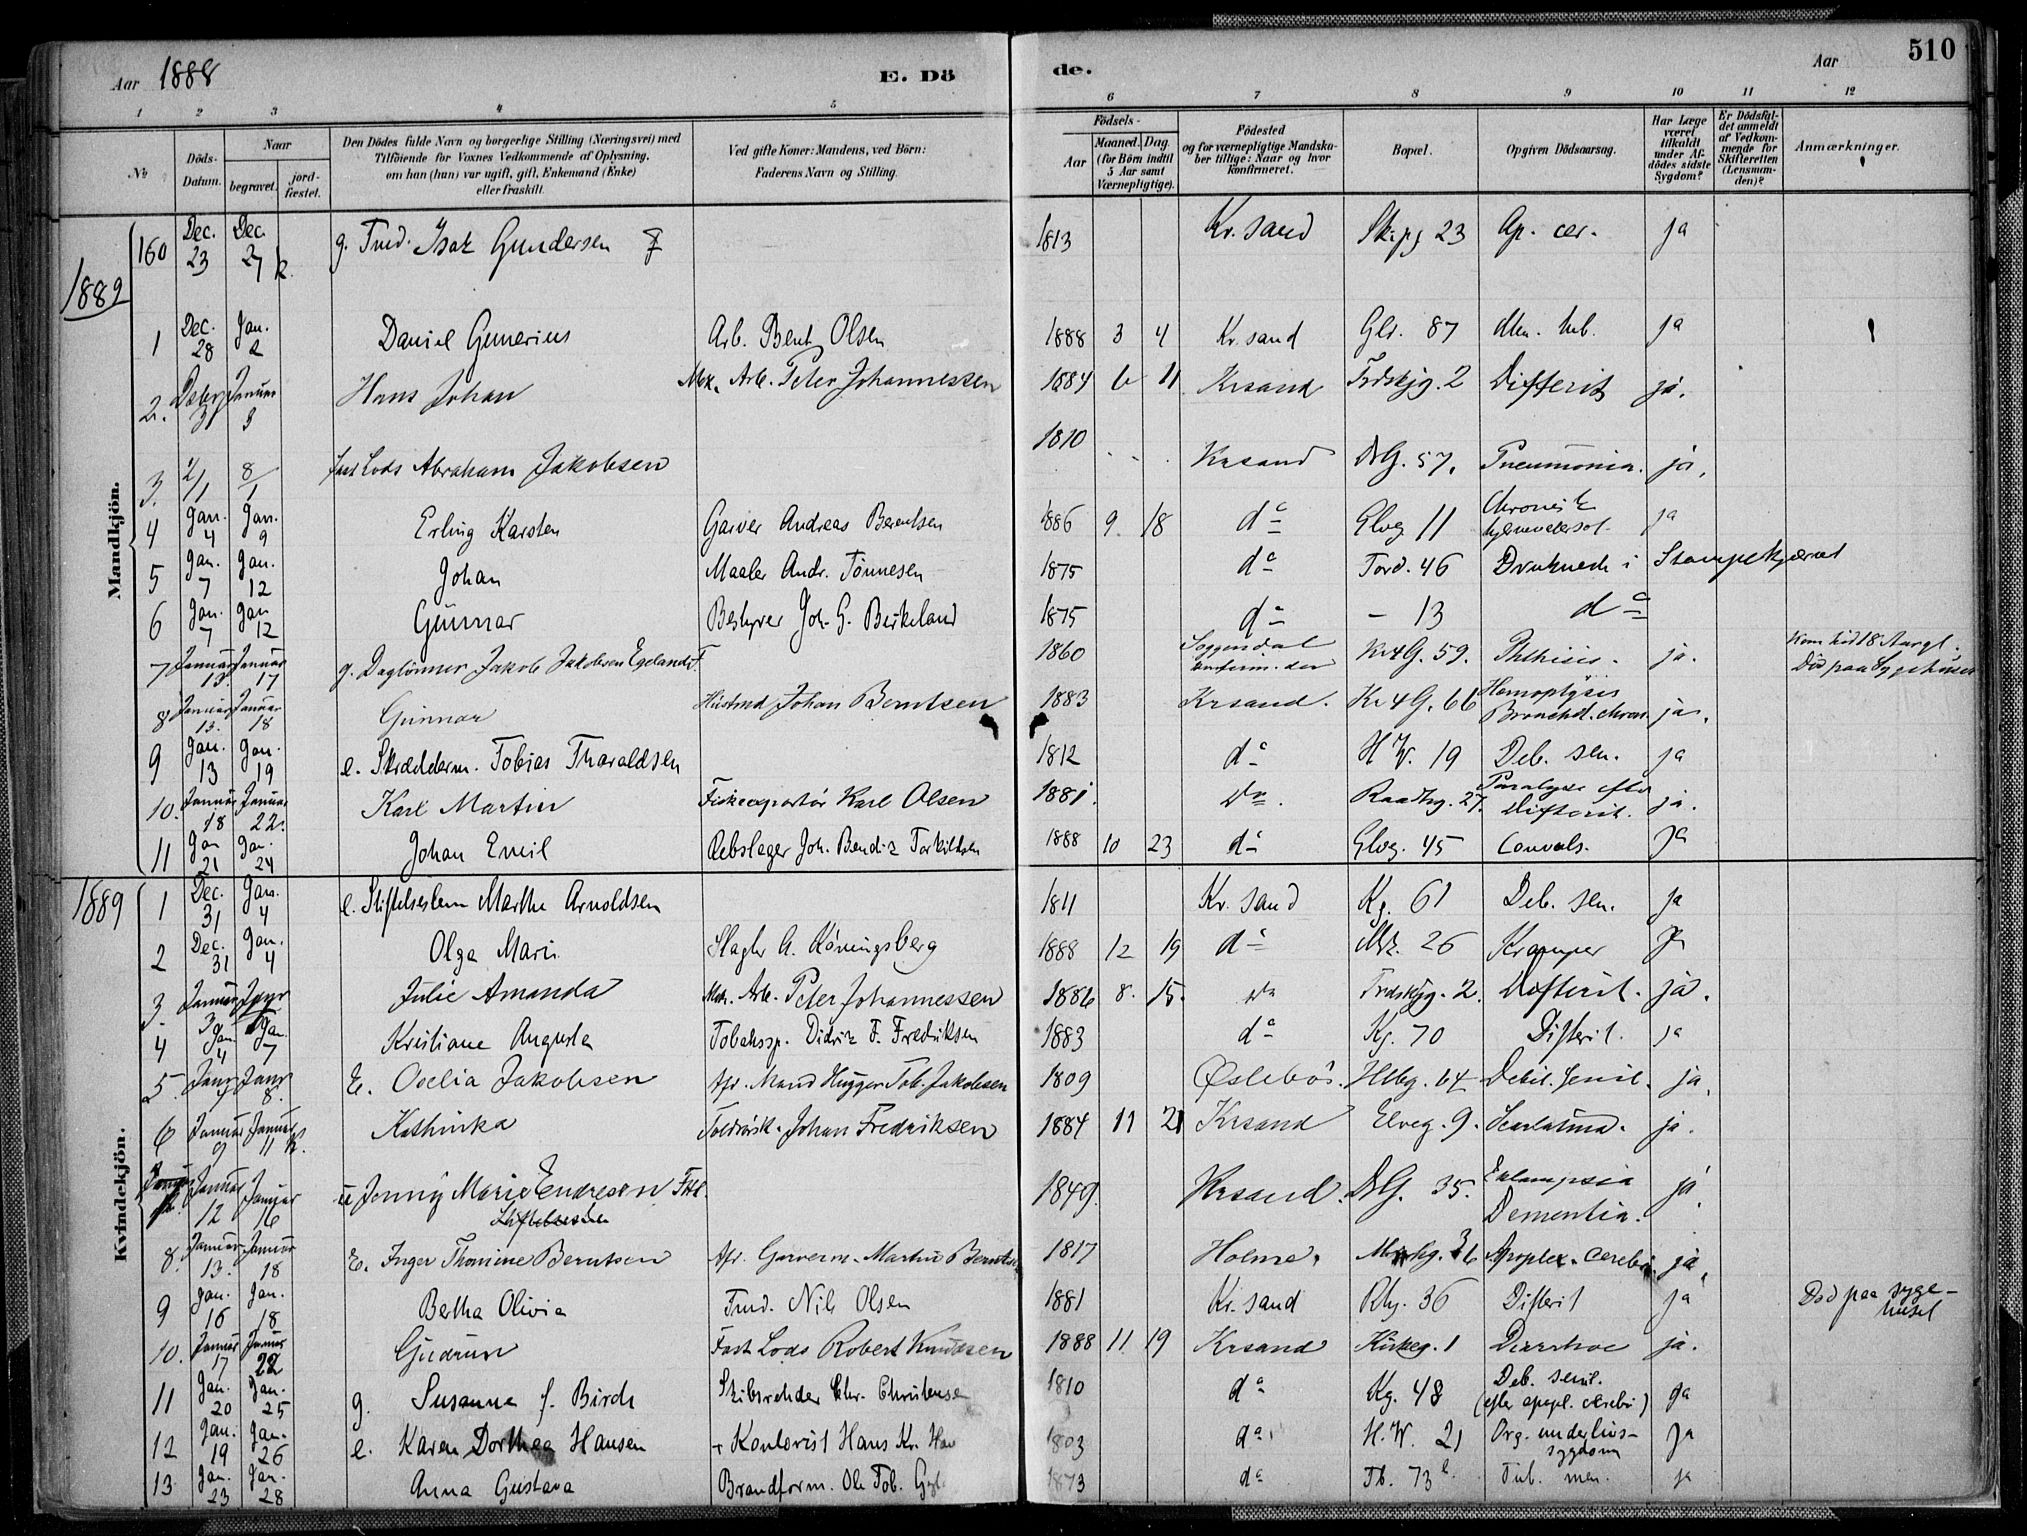 Aar 1888 E. Dö de. Aar 510
1 2 3 4 5 6 7 8 9 10 11 12
№ Döds-Datum. Naar begravet. jord-fæstet. Den Dödes fulde Navn og borgerlige Stilling (Næringsvei) med Tilföiende for Voxnes Vedkommende af Oplysning, om han (hun) var ugift, gift, Enkemand (Enke) eller fraskilt. Ved gifte Koner: Mandens, ved Börn: Faderens Navn og Stilling. Födsels- Aar Maaned. Dag. (for Börn indtil 5 Aar samt Værnepligtige). Födested og for værnepligtige Mandskaber tillige: Naar og hvor konfirmeret. Bopæl. Opgiven Dödsaarsag. Har Læge været tilkaldt under Afdödes sidste Sygdom? Er Dödsfaldet anmeldt af Vedkommende for Skifteretten (Lensmanden)? Anmærkninger.
160 Dec. 23 Dec. 27 k. g. Tmd. Isak Gundersen 1813 Kr.sand Skipg 23 Ap. cer. ja
1889
Mandkjön.
1 Dec. 28 Jan. 2 Daniel Gunerius Arb. Bent Olsen 1888 3 4 Kr.sand Glv. 87 Men. tub. ja
2. Decbr 31 Januar 3 Hans Johan Mek. Arb. Peter Johannessen 1884 6 11 Krsand Trdskjg. 2 Difterit ja.
3. 2/1 8/1 fast Lods Abraham Jakobsen 1810 Krsand D.G. 57. Pneumonia. ja.
4 Jan. 4 Jan. 9 Erling Karsten Garver Andreas Berentsen 1886 9. 18 do Elveg 11 Chronisk ja
5 Jan. 7 Jan. 12 Johan Maaler Andr. Tönnesen 1875 do Tord. 46 Druknede i Stampekjærnet
6 Jan. 7 Jan 12 Gunnar Bestyrer Joh. G. Birkeland 1875 do - 13 do
7 Januar 13. Januar 17 g. Daglönner Jakob Jakobsen Egeland F. 1860 Soggendal konfirm. der Kr4G. 59. Phthisis. ja. Kom hid 18 Aar gl. Död paa Sygehuset
8 Januar 13. Januar 18 Gunnar Hustmd Johan Berntsen 1883 Krsand. Kr4G. 66 Hemoptysis Bronchit. chron. ja.
9 Jan. 13 Jan. 19 e. Skrædderm. Tobias Tharaldsen 1812 do H.W. 19 Deb. sen. ja
10. Januar 18 Januar 22. Karl Martin Fiskeexportör Karl Olsen 1881. Do. Raadhg. 27. Paralyse efter Difterit. ja.
11 Jan 21 Jan. 24 Johan Emil Rebslager Joh. Bendix Torkildsen 1888 10 23 do Elveg. 45 Convuls. ja
1889
Kvindekjön.
1 Dec. 31 Jan. 4 e. Stiftelseslem Marthe Arnoldsen 1811 Kr.sand Kg. 61 Deb. sen. ja
2 Dec. 31 Jan. 4 Olga Marie Slagter A. Köningsberg 1888 12 19 do Mk. 26 Kramper ja
3. Januar 3 Janr 7 Julie Amanda Mek. Arb. Peter Johannessen 1886 8. 15. Do Trdskjg. 2. Difterit. ja.
4 Jan. 4 Jan. 7 Kristiane Augusta Tobaksp. Didrik F. Fredriksen 1883 do Kg. 70 Difterit. ja
5. Janr 4 Janr 8. E. Ocelia Jakobsen Afd. Mand Hugger Tob. Jakobsen 1809 Öslebö. Hlbg. 64 Debil. senil. ja.
6 Januar 9 Januar 11 k. Kathinka Johan Fredriksen 1884 11 21 Krsand Elveg. 9. Scarlatina. ja.
Januar 12 Januar 16 u Jenny Marie Endresen Frk. Stiftelseslem 1849. Krsand. D.G. 35. Eklampsia Dementia. ja.
8. Januar 13. Januar 18 E. Inger Thomine Berntsen Afd. Garverm. Martin Berntsen 1817 Holme. 36 Apoplex. cerebri ja.
9 Jan. 16 Jan. 18 Bertha Olivia Tmd. Nils Olsen 1881 Kr.sand Rhg. 36 Difterit ja Död paa sygehuset
10. Januar 17 Januar 22 Gudrun Fast Lods Robert Knudsen 1888 11 19 Krsand Kirkeg. 1 Diarrhoe ja.
11 Jan. 20 Jan. 25 g. Susanne f. Birch Skibsreder Chr. Christensen 1810 do Kg. 48 Deb. senil. (efter apopl. cerebri) ja
12 Jan. 19 Jan. 26 e. Karen Dorthea Hansen + Kontorist Hans Kr. 1803 do H.W. 21 Org. underlivssygdom ja
13 Jan. 23 Jan. 28 Anna Gustava Brandform. Ole Tob. 1873 do Tb. 73 Tub. men. ja